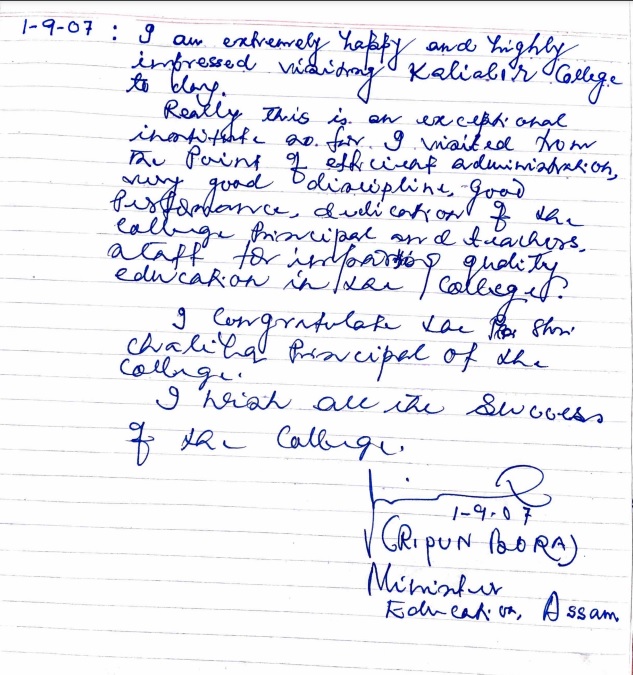 1-9-07 : I am extremely happy and highly
impressed visiting Kaliabor College
to day.
Really this is an exceptional
institute so far I visited from
the Point of efficient administration,
very good discipline, good
Performance, dedication of the
College Principal and teachers,
staff for imparting quality
education in the College.
I Congratulate the Shri
Principal of the
College.
I Wish all the Success
of the College.
1-9-07
(RIPUN BORA)
Minister
Education, Assam